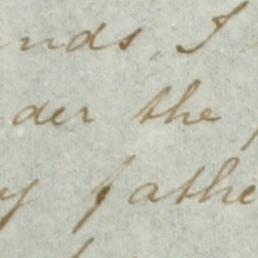 nds, I
der the
y fathe